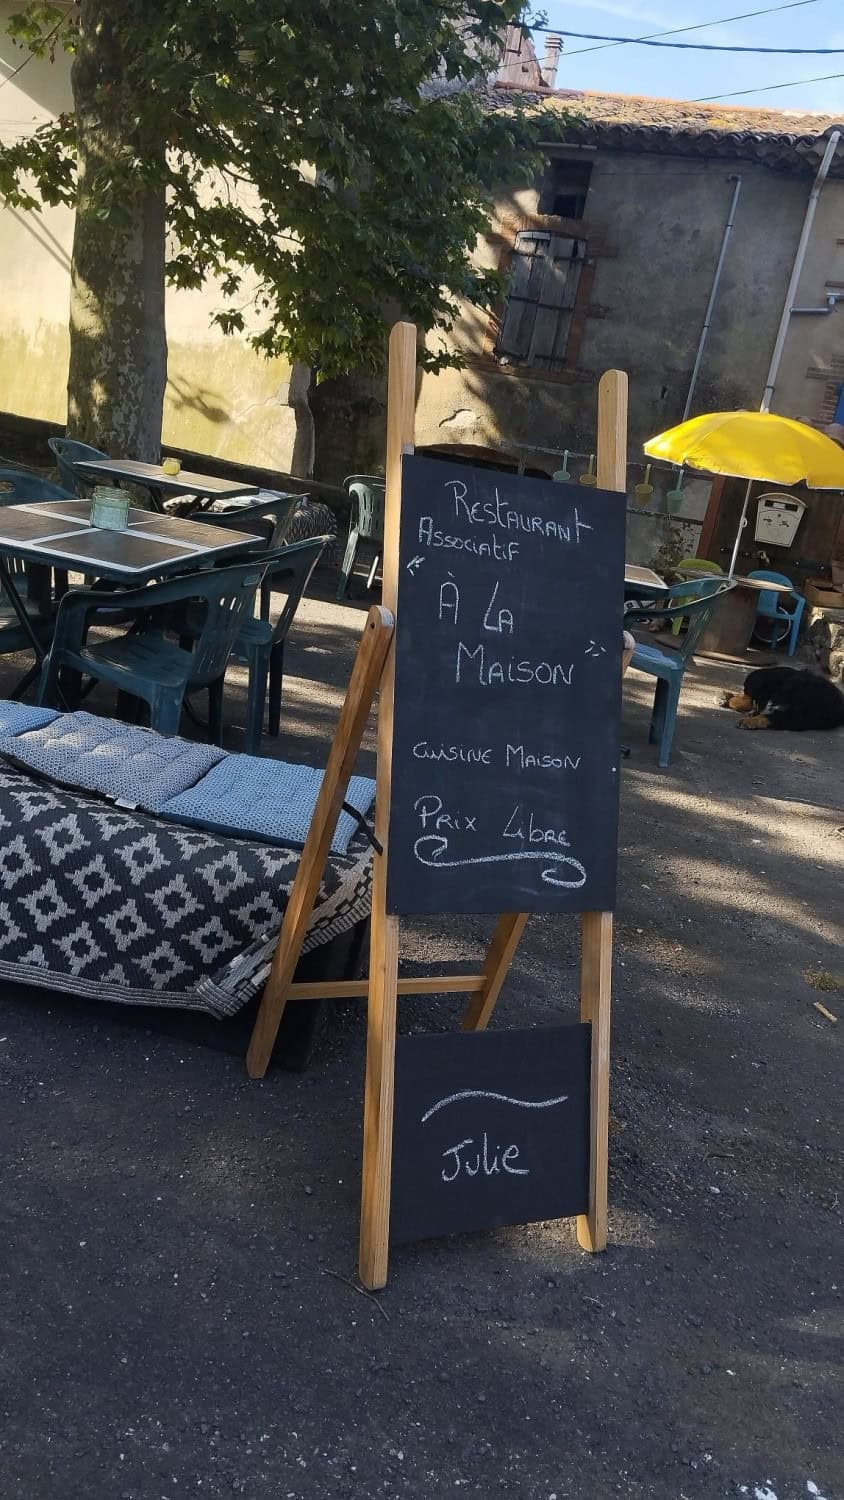 Restaurant
Associatif
"À La
Maison"
Cuisine Maison
Prix Libre
Julie